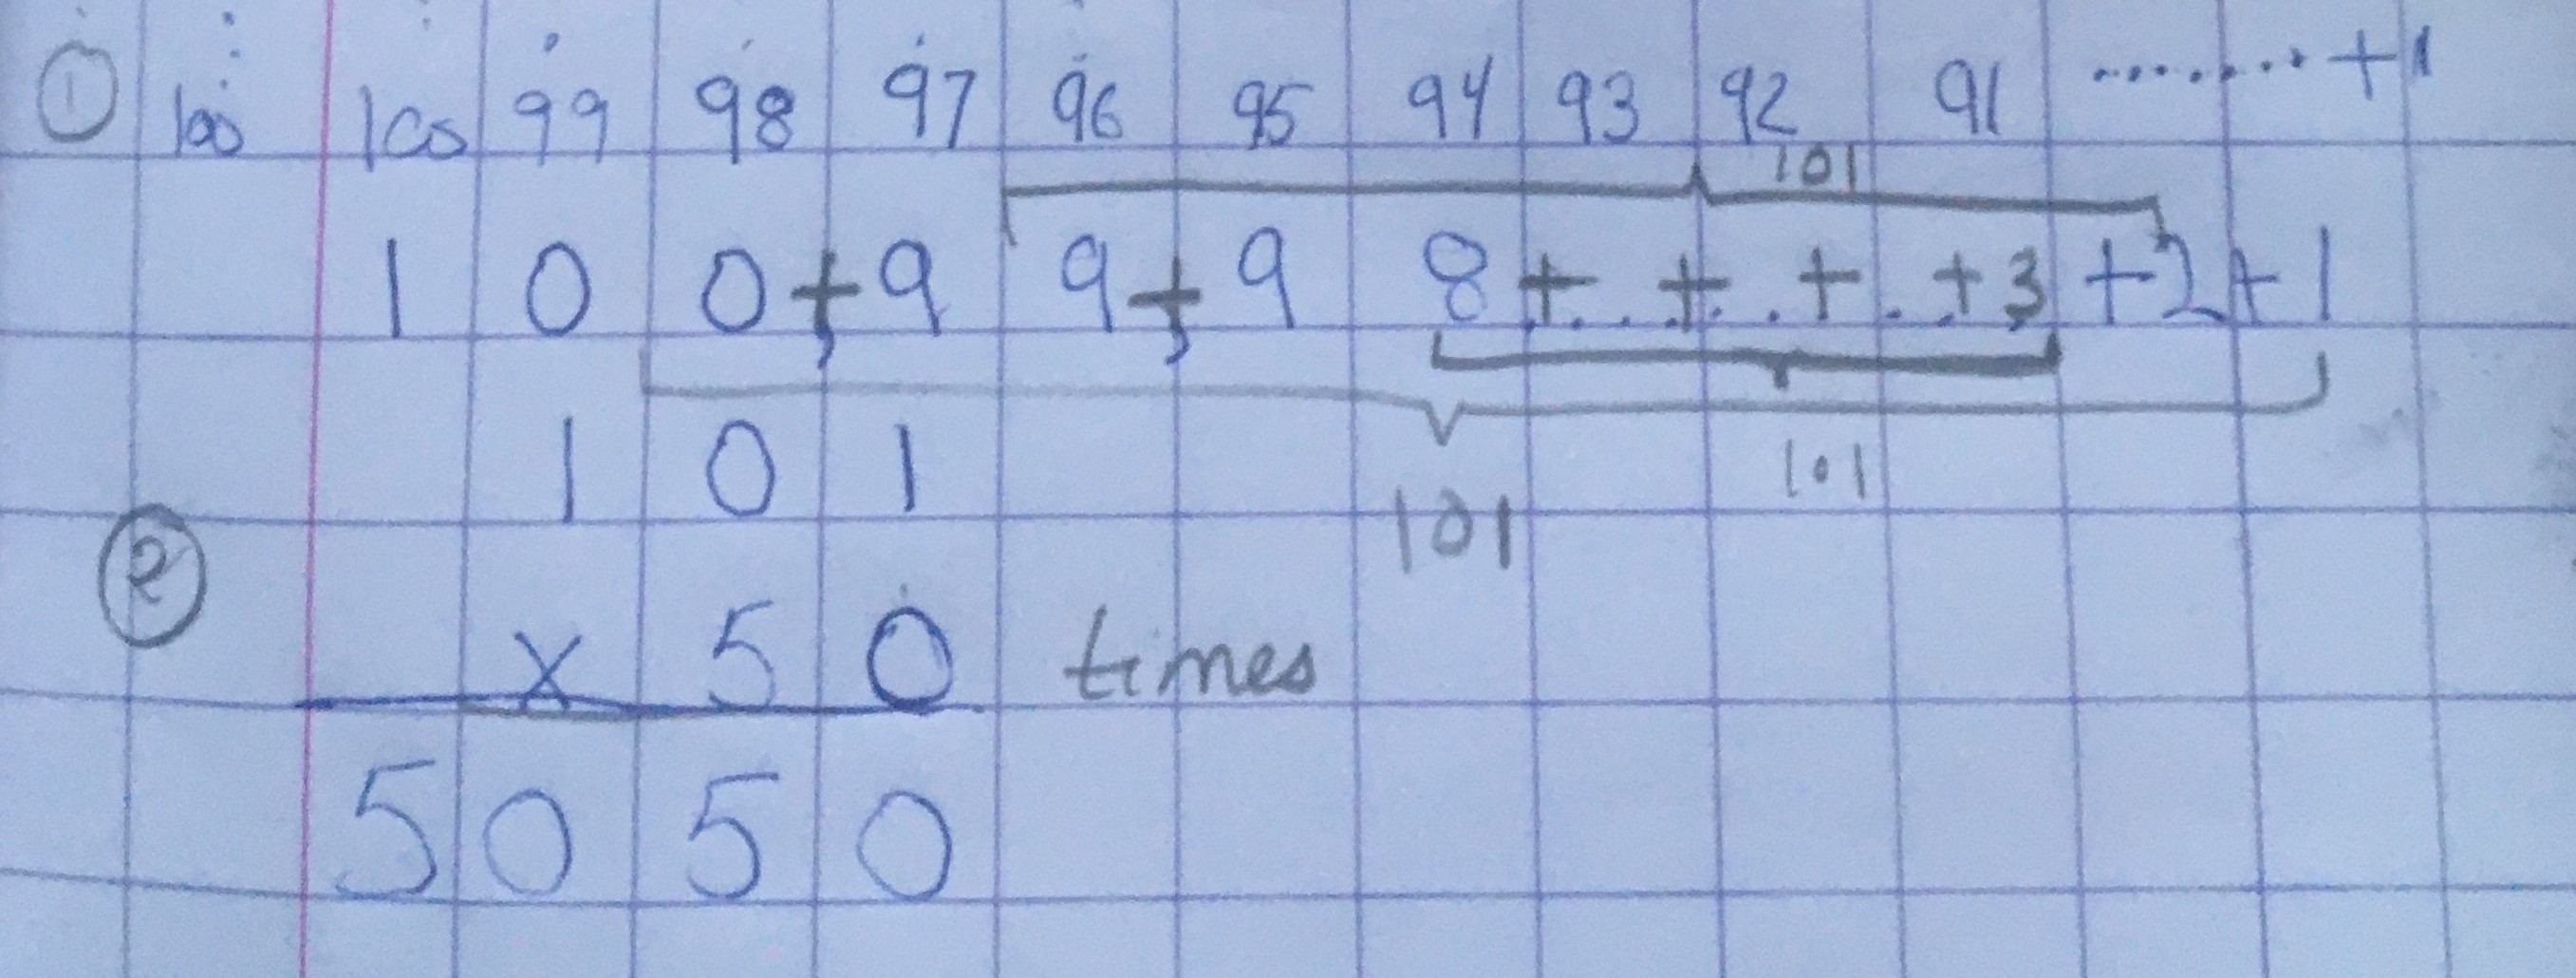 ① 100 100 99 98 97 96 95 94 93 92 91 ........ +1
101
100+99+98+..+..+..+3+2+1
101
101
101
② x 50 times
5050